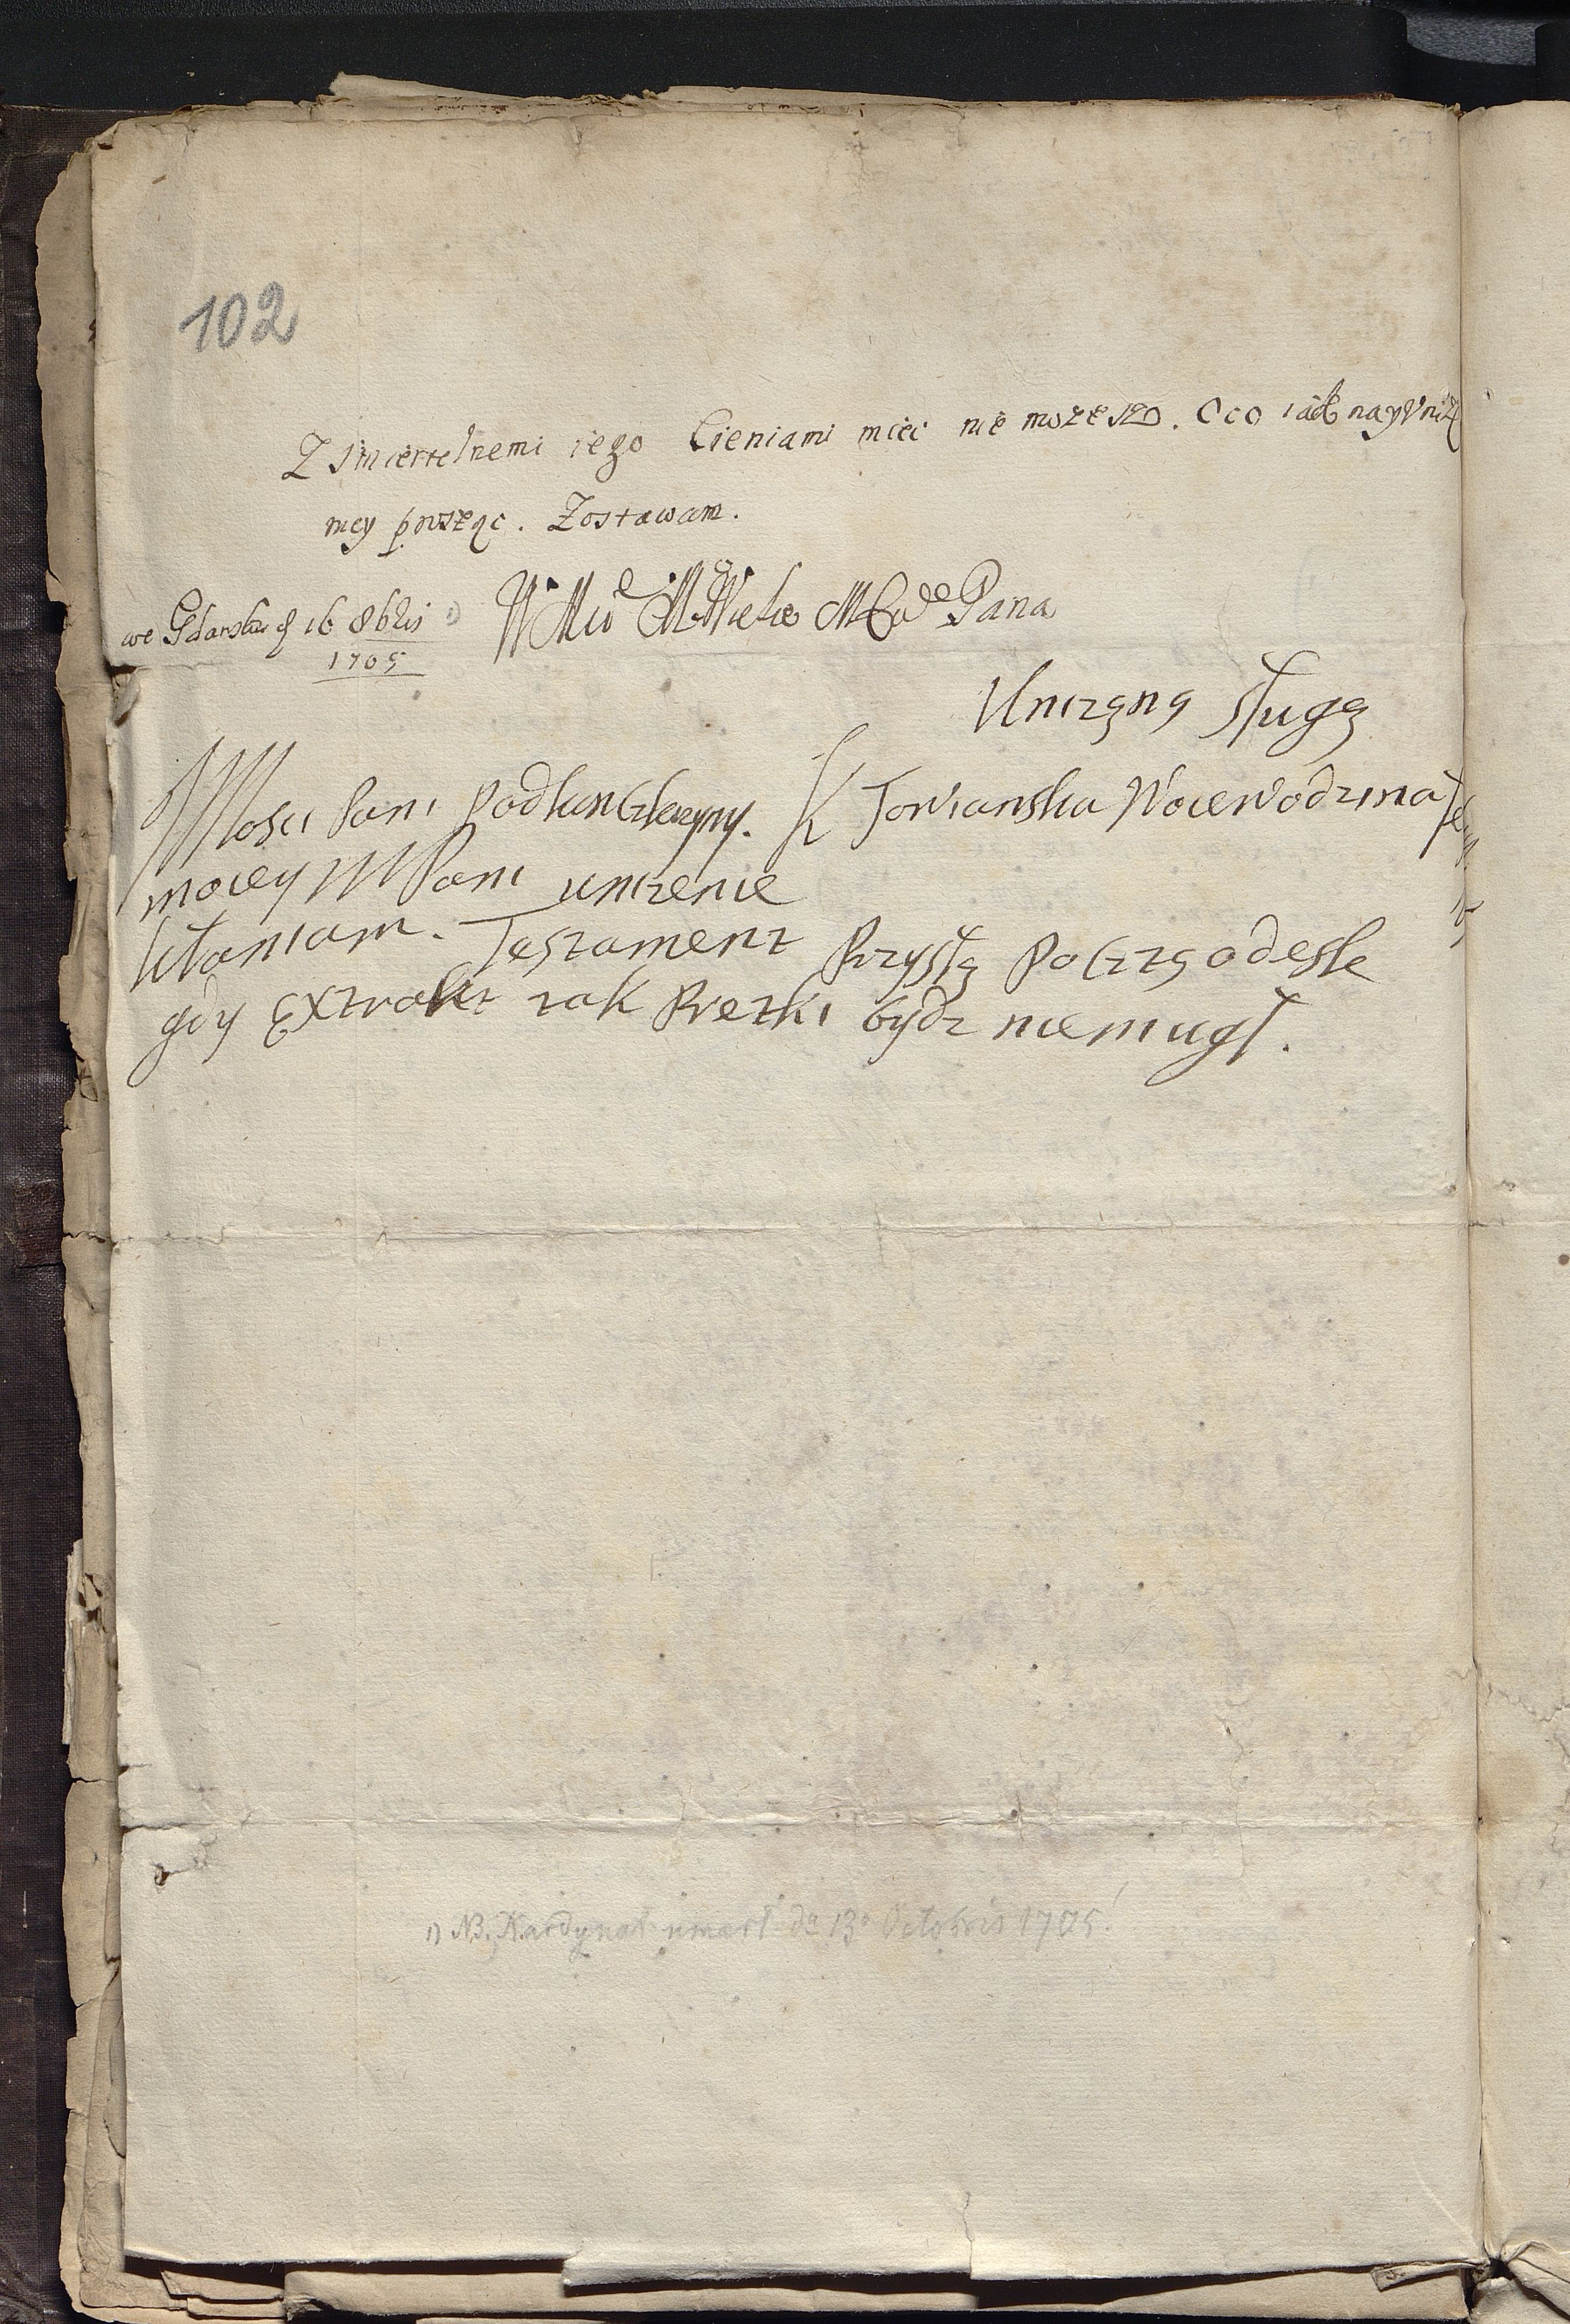 102
Z Smiertelnemi iego Cieniami miec nie mozeszo. Oco iak nayUniz
ney prosząc. Zostawam.
we Gdansku d 16 8bris 1) WMći MMWielce MCi Pana
1705
Unizoną sługą
Mosci Pani Podkanclerzyny. K Towianska Woiewodzina
moiey MPani unizenie
kłaniam. Testament Przyszłą Pocztą odesle
gdy Extrakt tak Pretki bydz niemugł.
1) NB. Kardynał umarł d. 13 Octobris 1705!